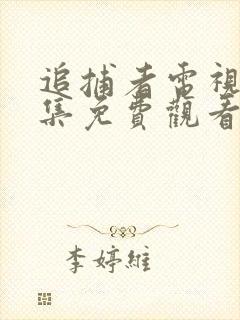 追捕者電視
集免費觀看
李婷維